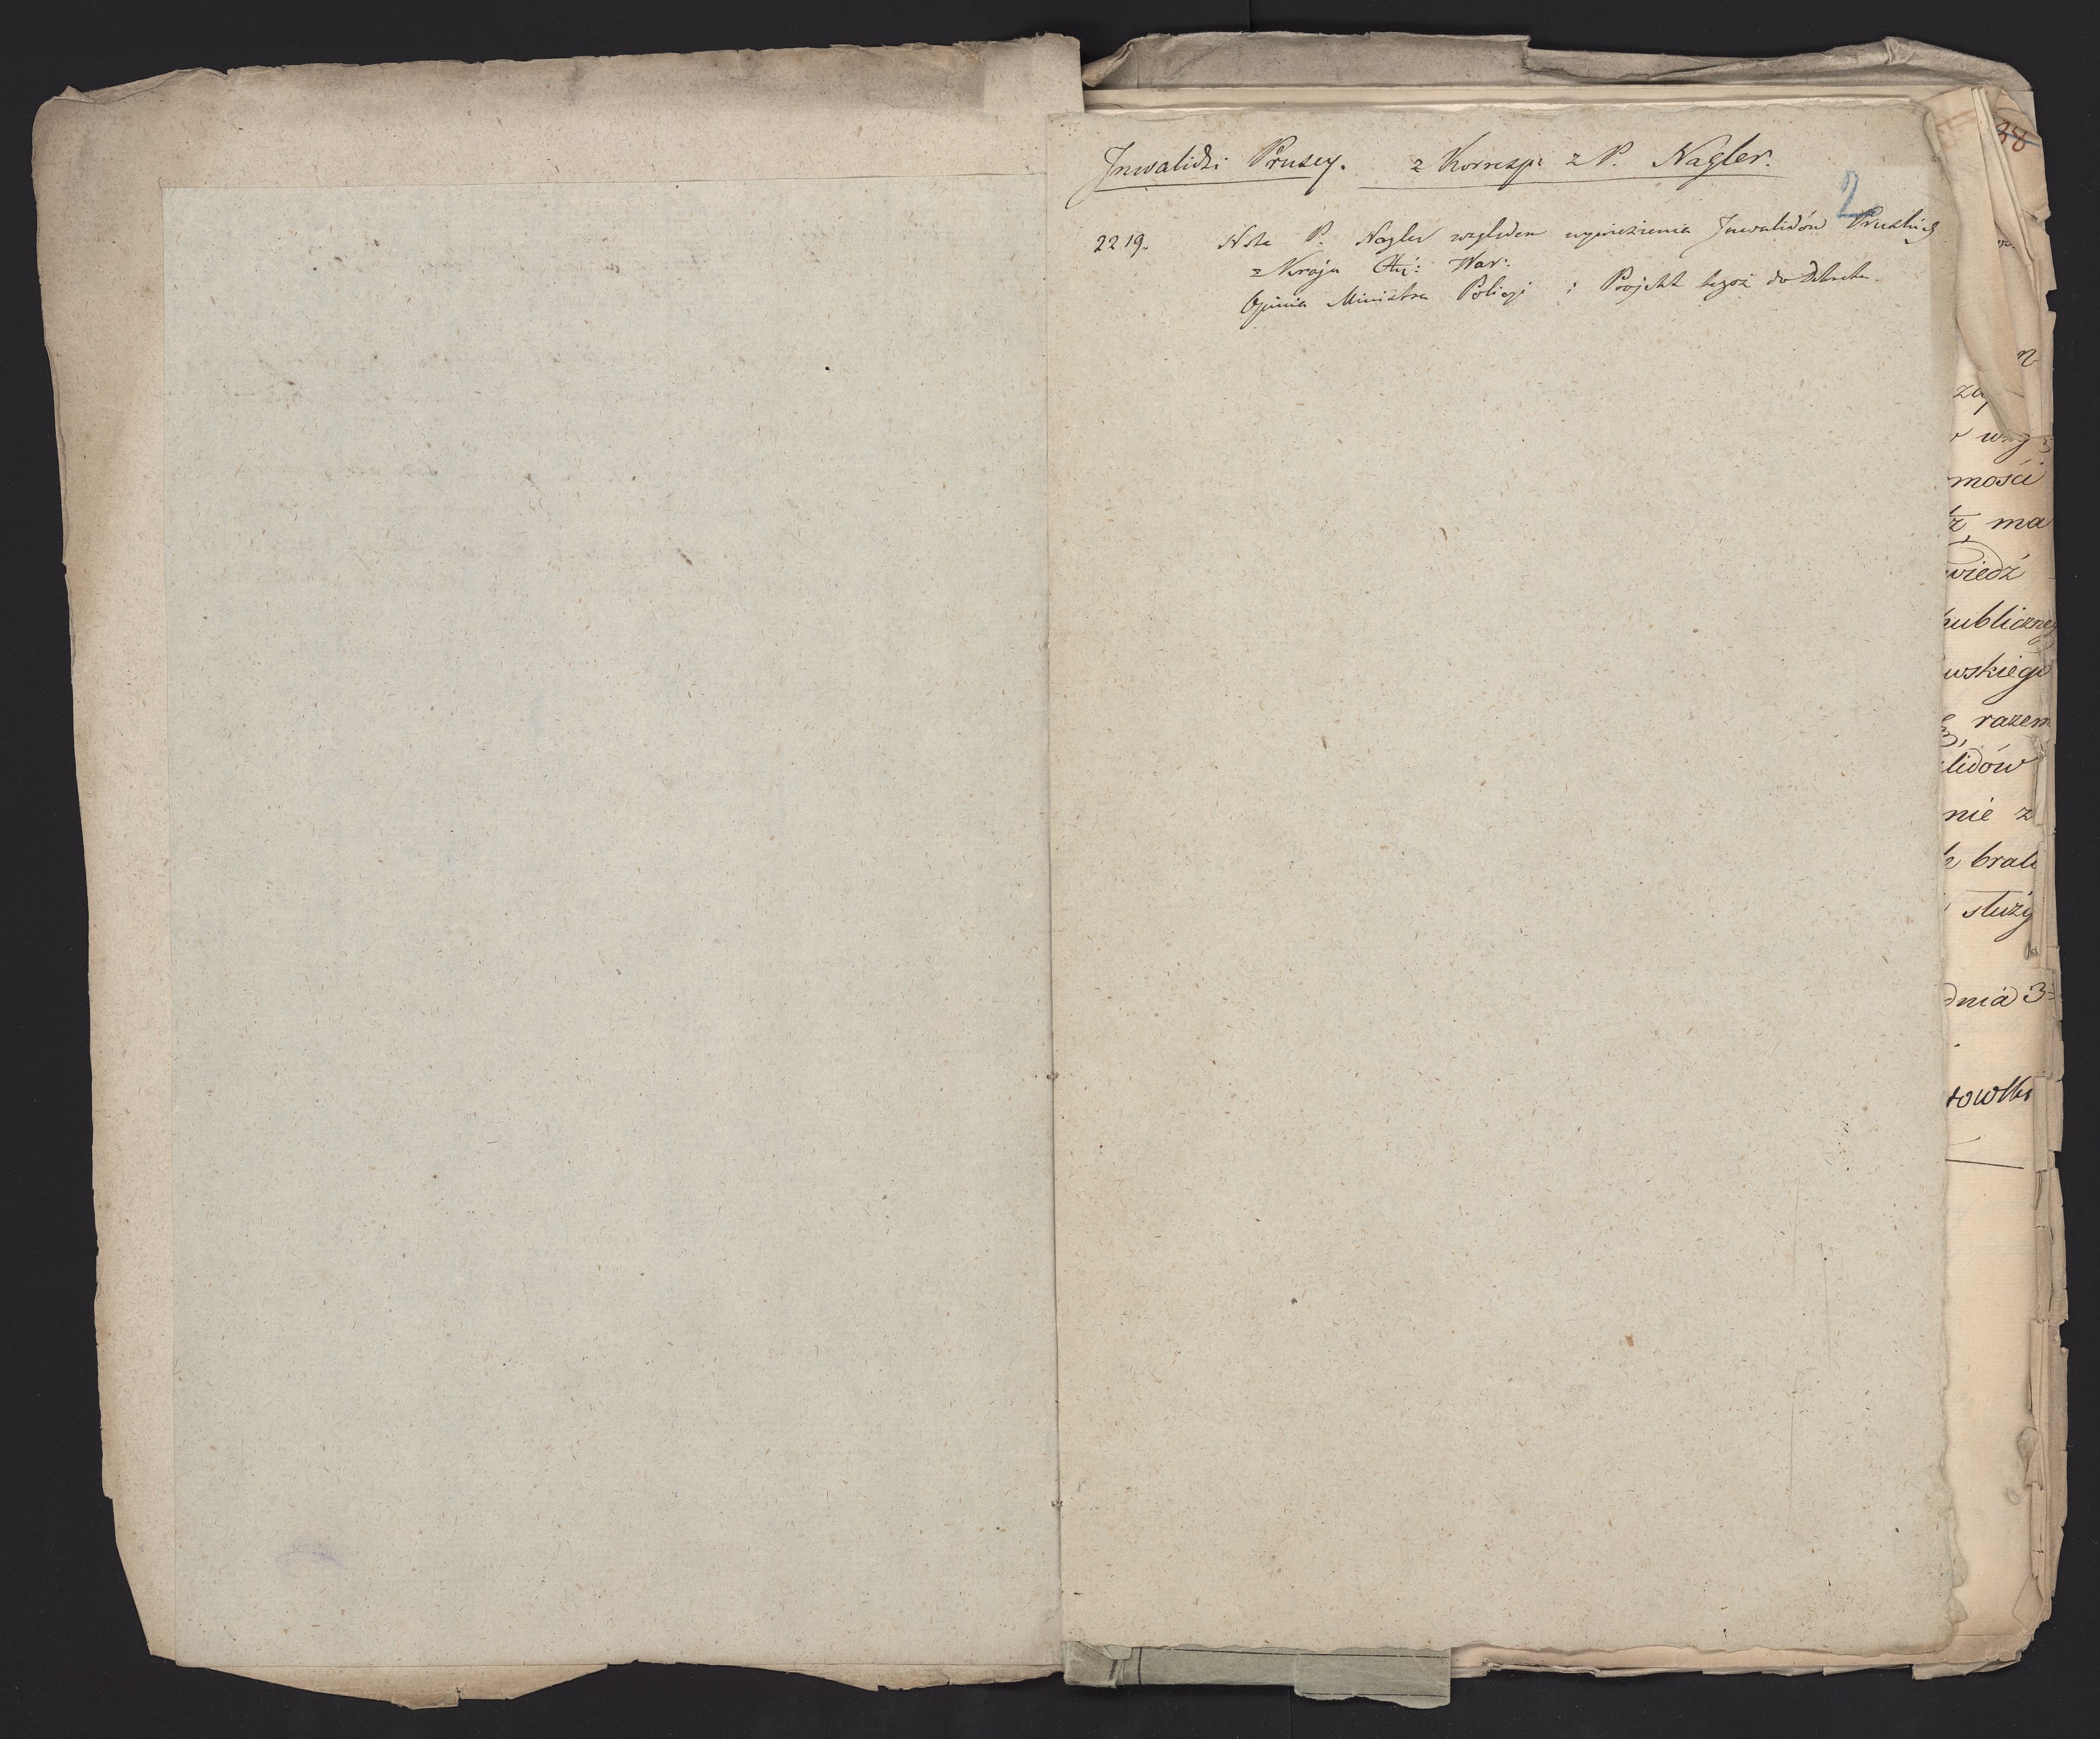 Inwalidzi Prusey. z Korresp: z P. Nagler.
2
38
2219. Nota P. Nagler względem wywiezienia Inwalidów Pruskich
z Kraju Xtw: War:
Opinia Ministra Policyi i Projekt tegoż do Dekretu.
mości
ma
wiedź
publiczney
wskiego
razem
lidów
nie z
brali
służy
dnia 3